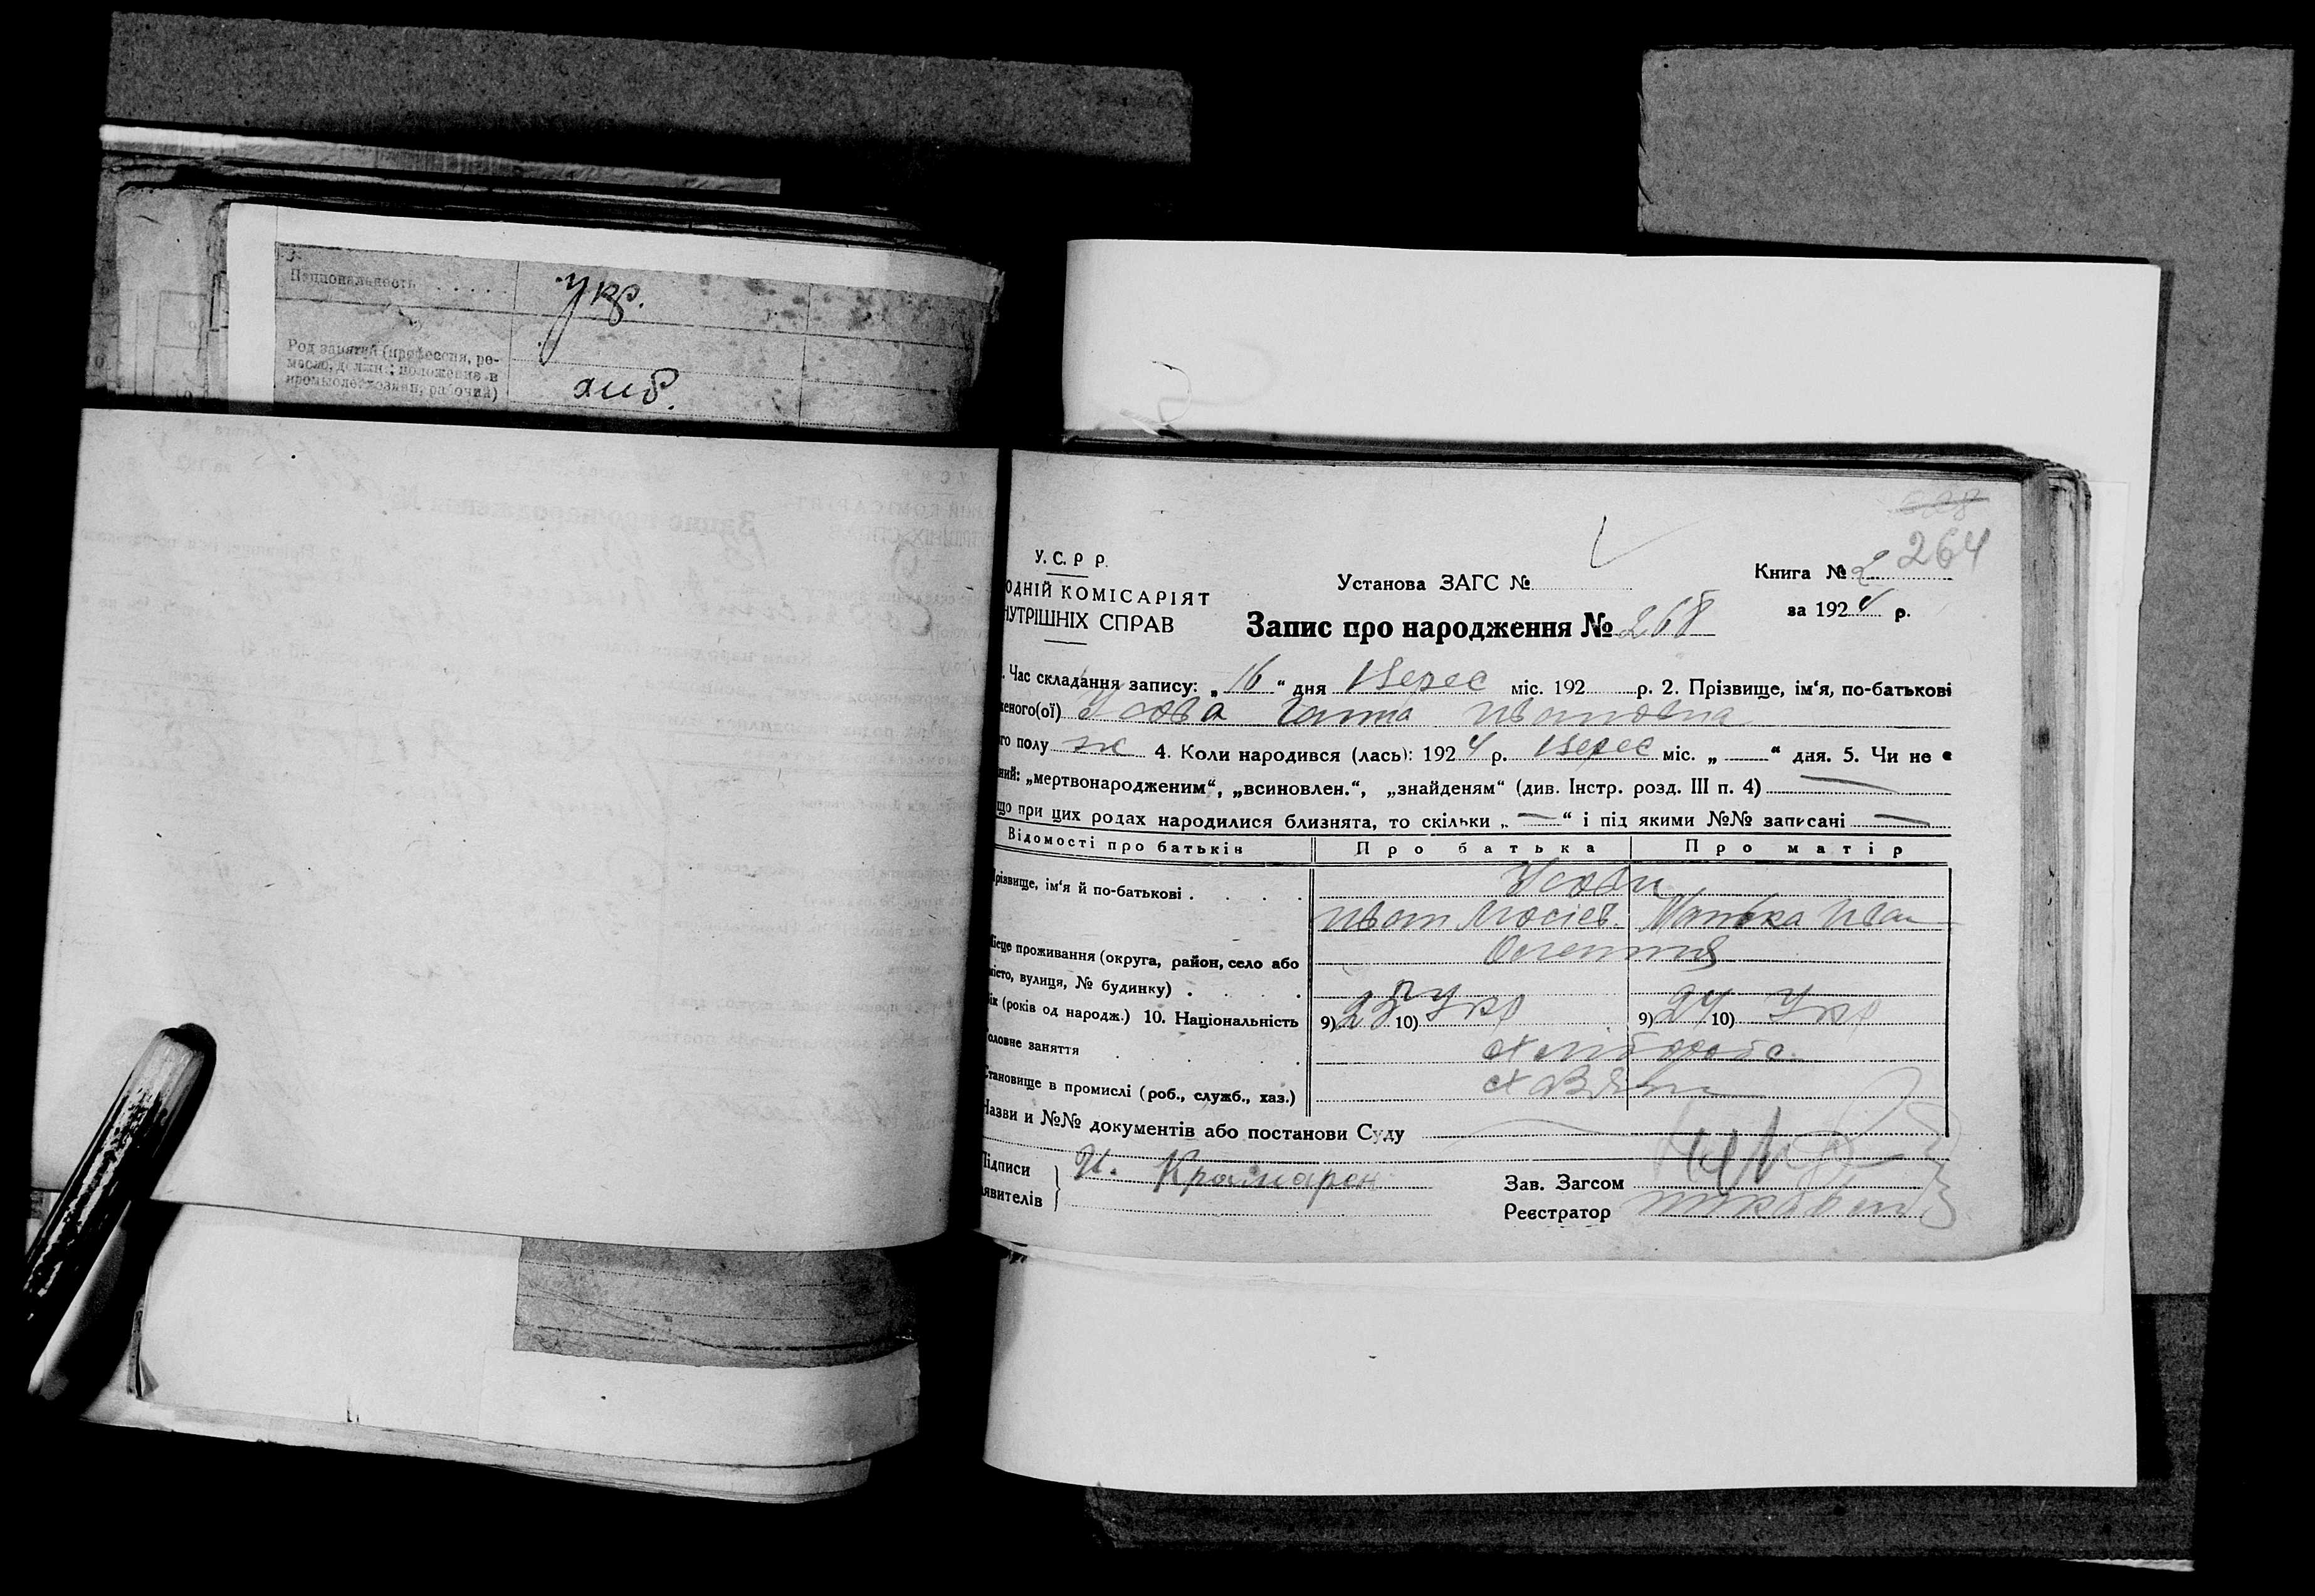 Национальность . . . . . укр.
Род занятий (профессия, ре-
месло, должн.; положение в
промысле: хозяин, рабочий) хліб.
264
У.С.Р Р.
ОДНІЙ КОМІСАРІЯТ
НУТРІШНІХ СПРАВ
Установа ЗАГС №
Книга № 2
за 1924 р.
Запис про народження № 268
. Час складання запису: „16“ дня Верес міс. 192 р. 2. Прізвище, ім‘я, по-батькові
еного(ої) Усова Ганна Ивановна
го полу ж 4. Коли народився (лась): 1924 р. Верес міс. „ “ дня. 5. Чи не є
ний: „мертвонародженим“, „всиновлен.“, „знайденям“ (див. Інстр. розд. III п. 4) —
що при цих родах народилися близнята, то скільки „—“ і під якими №№ записані —
Відомості про батьків Про батька Про матір
різвище, ім‘я й по-батькові . . . . Усови
Иван Мосієв
Місце проживання (округа, район, село або
місто, вулиця, № будинку) . . .
ік (років од народж.) 10. Національність 9) 10) Укр 9) 24 10) Укр
оловне заняття . . . . Хлібороб
Становище в промислі (роб., служб., хаз.)
Назви и №№ документів або постанови Суду
Підписи
явителів
И. Крамарен
Зав. Загсом
Реєстратор